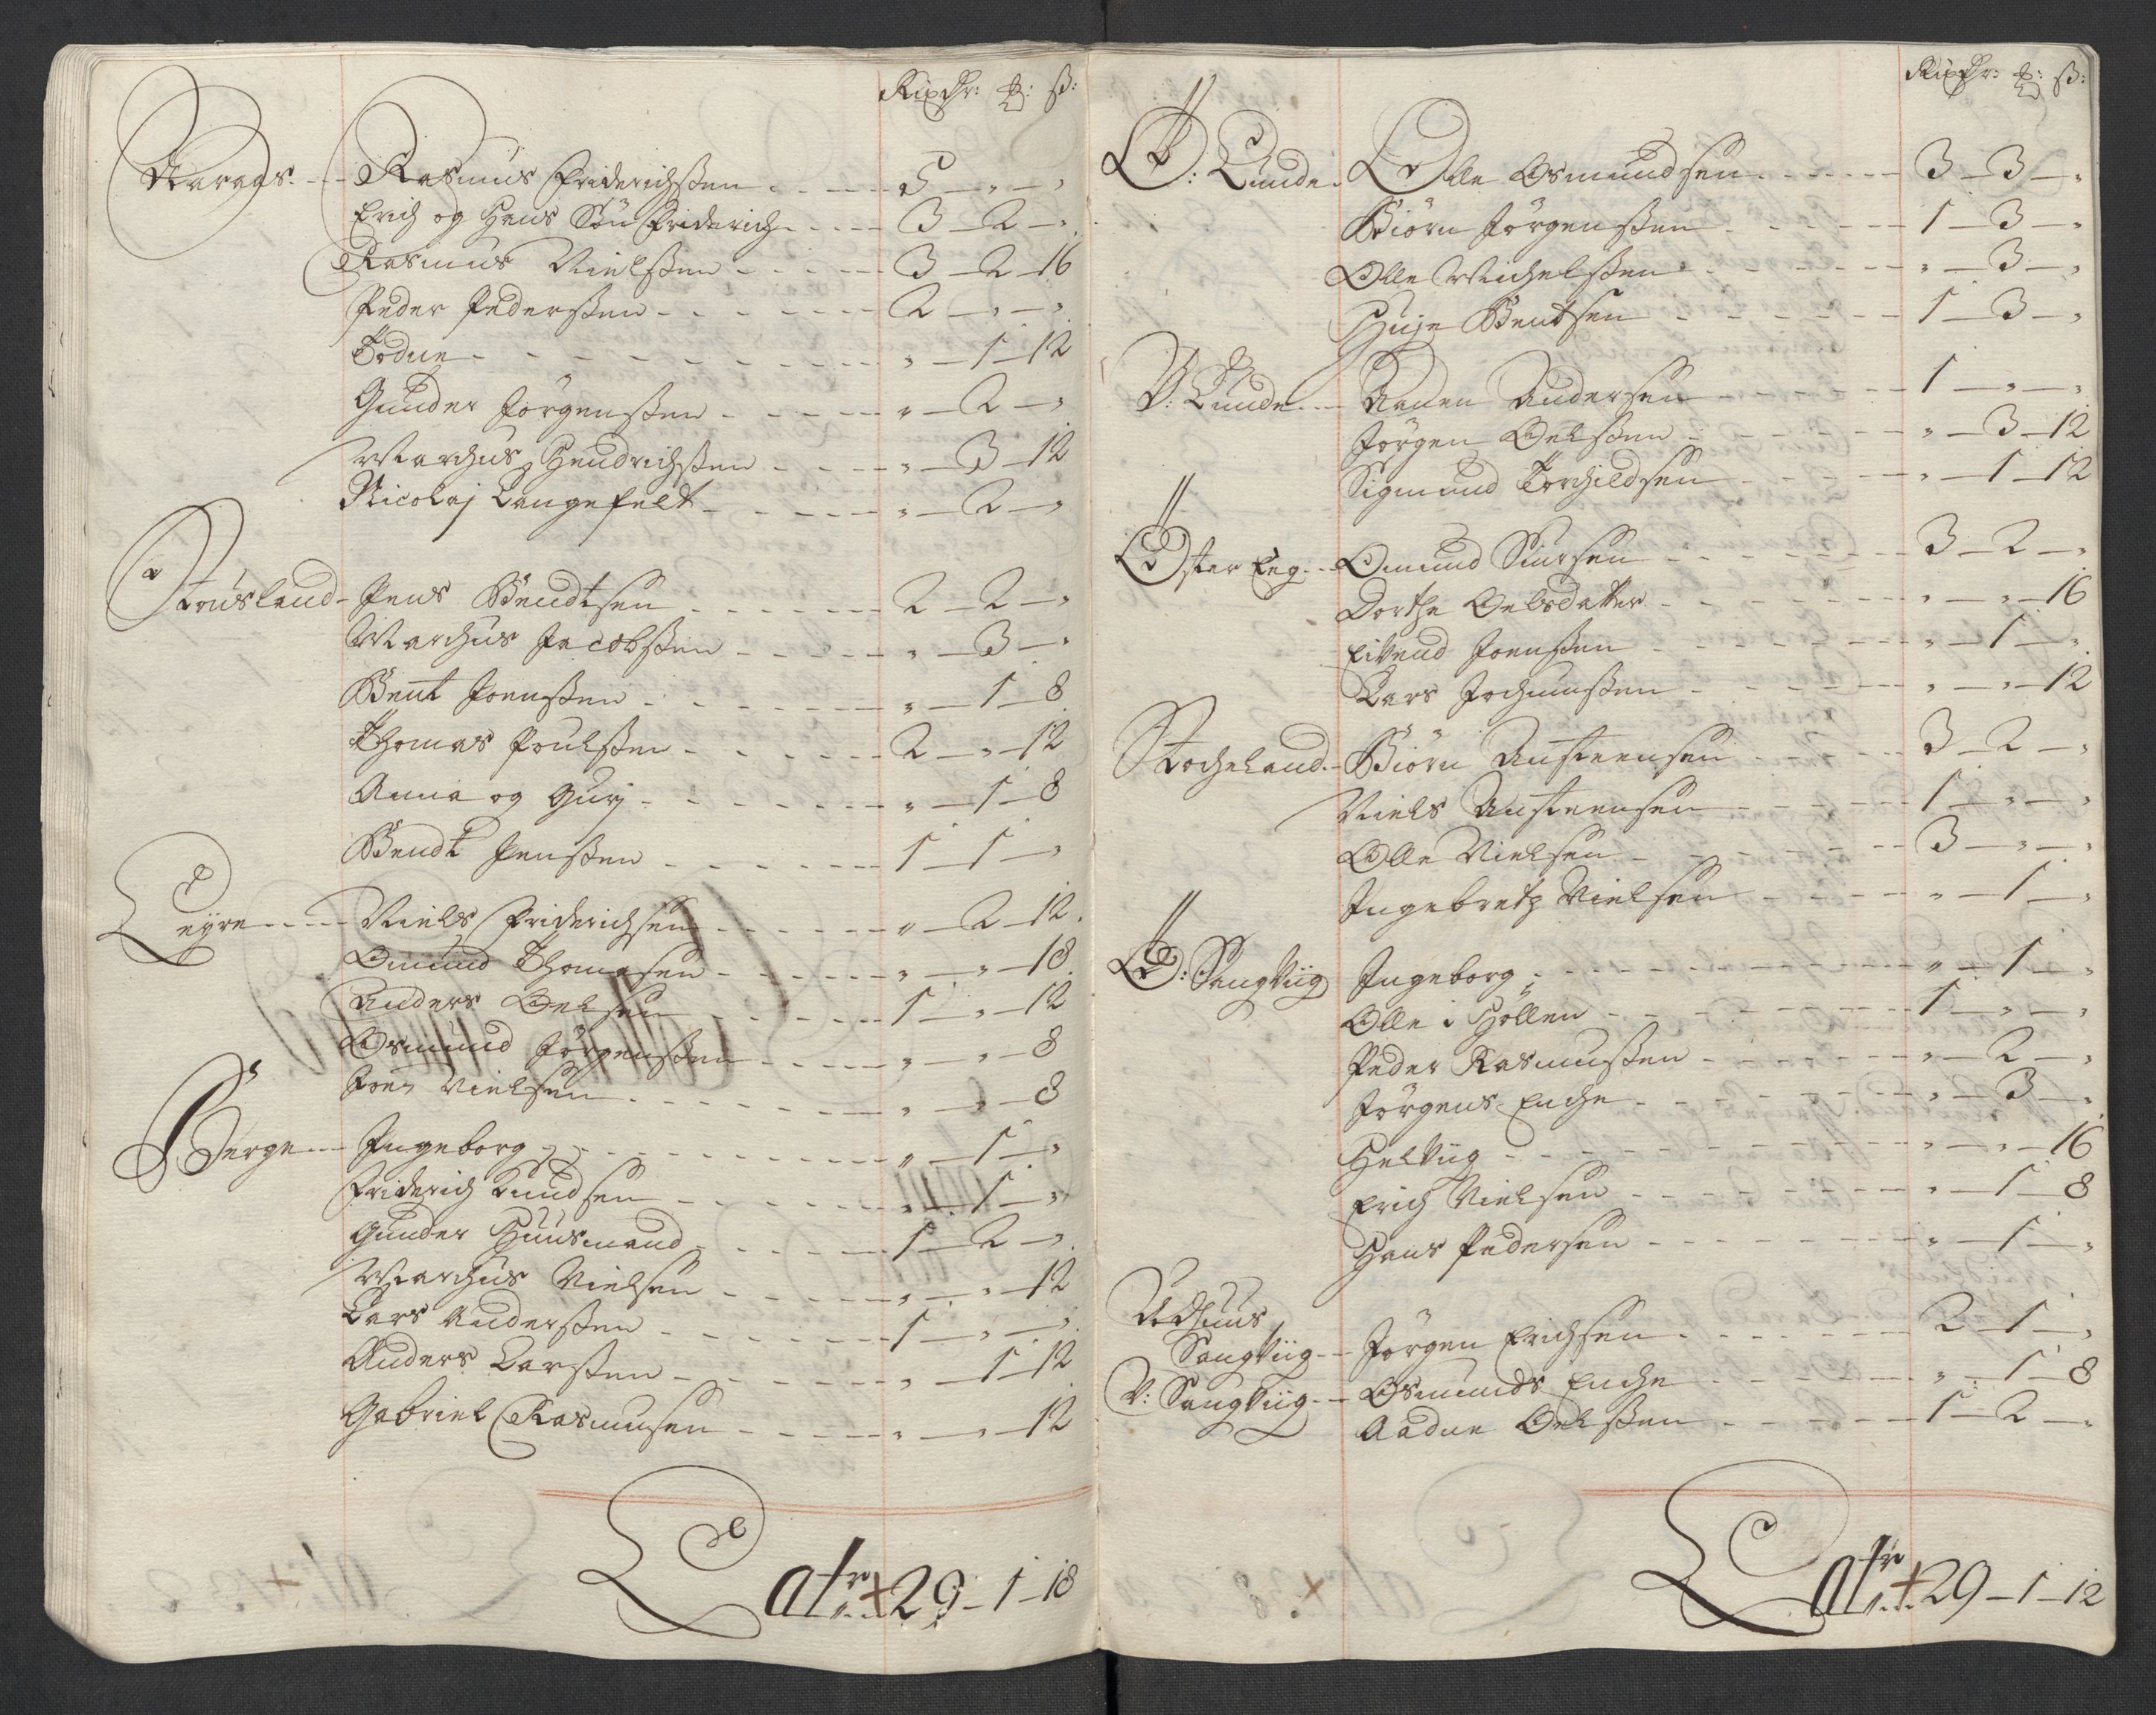 Rixdr: ₰: ß:
Narags Rasmus Friderichßen 5 - " - "
Erich og Hans Søn Friderich 3 - 2 - "
Rasmus Nielßen 3 - 2 - 16
Peder Pederßen 2 - " - "
Todne " - 1 - 12
Gunder Jørgenßen " - 2 - "
Marchus Hendrichßen " - 3 - 12
Nicolaj Langefeldt " - 2 - "
Stousland Jens Bendtsen 2 - 2 - "
Marchus Jacobßen " - 3 - "
Bent Joenßen " - 1 - 8
Thomas Poulßen 2 - " - 12
Anna og Gurj " - 1 - 8
Bendt Jenßen 1 - 1 - "
Leyre Niels Friderichsen " - 2 - 12
Omund Thomasen " - " - 18
Anders Oelsen 1 - " - 12
Osmund Jørgenßen " - " - 8
Joen Nielsen " - " - 8
Berge Ingeborg " - 1 - "
Friderich Knudsen " - 1 - "
Gunder Huusmand 1 - 2 - "
Marchus Nielsen " - " - 12
Lars Anderßen 1 - " - "
Anders Larßen " - 1 - 12
Gabriel Rasmusen " - " - 12
Latr 29 - 1 - 18
Rixdr: ₰: ß:
Ø: Lunde Olle Osmundsen 3 - 3 - "
Biørn Jørgenßen 1 - 3 - "
Olle Michelßen " - 3 - "
Huje Bentsen 1 - 3 - "
V: Lunde Aanen Andersen 1 - " - "
Jørgen Oelßen " - 3 - 12
Sigmund Torchildsen " - 1 - 12
Øster Eeg Omund Siursen 3 - 2 - "
Dorthe Oelsdatter " - " - 16
Eivend Joenßen " - 1 - "
Lars Jochumßen " - " - 12
Stocheland Biørn Austeensen 3 - 2 - "
Niels Austeensen 1 - " - "
Olle Nielsen 3 - " - "
Ingebretz Nielsen " - 1 - "
Ø: Sangviig Ingeborg " - 1 - "
Olle i Høllen 1 - " - "
Peder Rasmußen " - 2 - "
Jørgens Enche " - 3 - "
Helviig " - " - 16
Erich Nielsen " - 1 - 8
Hans Pedersen " - 1 - "
Udhuus
Sangviig Jørgen Erichsen 2 - 1 - "
V: Sangviig Osmunds Enche " - 1 - 8
Aadne Oelßen 1 - 2 - "
Latr 29 - 1 - 12